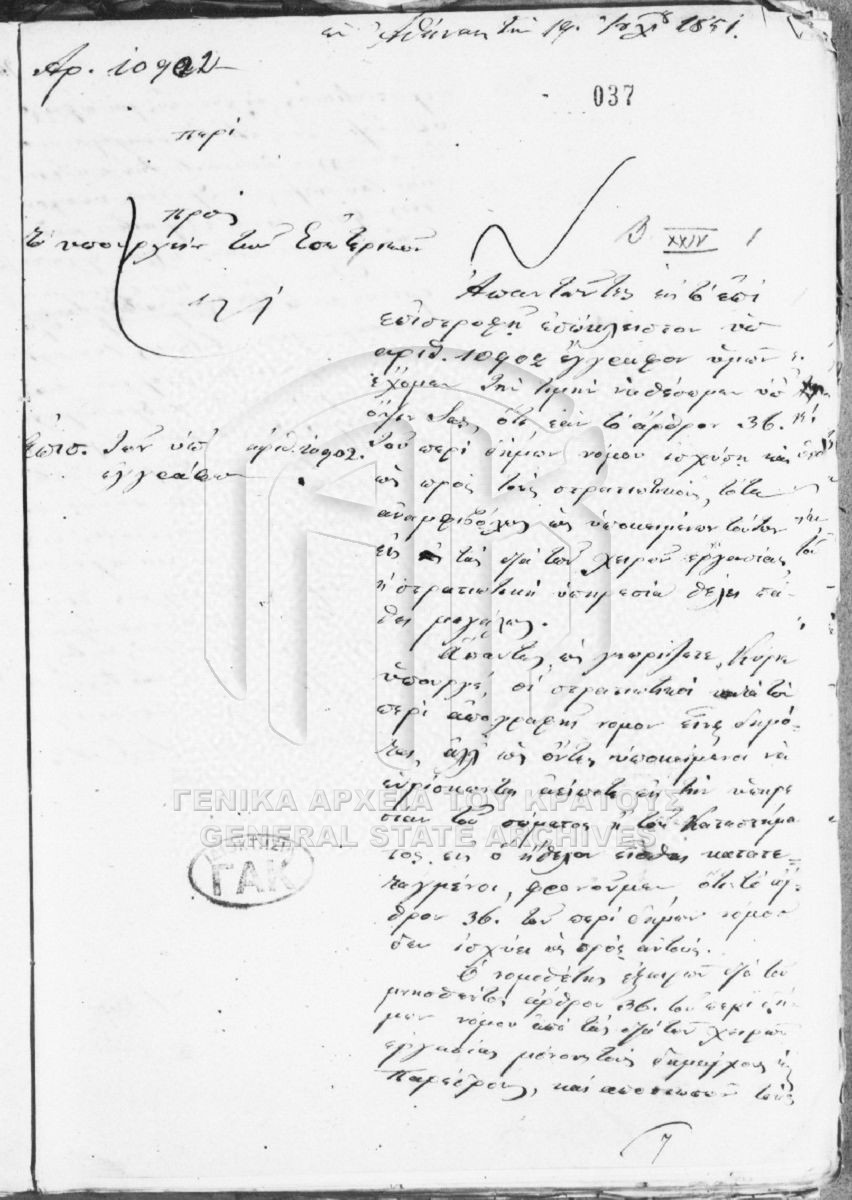 ἐν Ἀθήναις τὴν 19 1851.
Ἀρ. 10902
037
περὶ
πρὸς
τὸ ὑπουργεῖον τῶν Ἐσωτερικῶν
XXIV
Ἀπαντῶντες εἰς τὸ ἐπὶ
ἐπιστροφῇ ἐσώκλειστον ὑπ
ἀριθ. 10902 ἔγγραφον ὑμῶν
ἔχομεν τὴν τιμὴν νὰ θέσωμεν ὑπ
ὄψιν Σας, ὅτι ἐὰν τὸ ἄρθρον 36.
Ἐπισ. τῶν ὑπ ἀριθ. 10902.
ἐγγράφων
τοῦ περὶ δήμων νόμου ἰσχύῃ καὶ
ὡς πρὸς τοὺς στρατιωτικούς, τότε
ἀναμφιβόλως ὡς ὑποκειμένων τούτων
εἰς τὰς διὰ τῶν χειρῶν ἐργασίας,
ἡ στρατιωτικὴ ὑπηρεσία θέλει πά-
θει μεγάλως.
Ἅπαντες, ὡς γνωρίζετε, Κύριε
ὑπουργέ, οἱ στρατιωτικοὶ κατὰ τὸν
περὶ ἀπογραφῆς νόμον εἶνε δημό-
ται, ἀλλ ὡς ὄντες ὑποκείμενοι νὰ
εὑρίσκωνται ἀείποτε εἰς τὴν ὑπηρε
σίαν τοῦ σώματος ἢ τοῦ Καταστήμα
τος εἰς ὃ ἤθελον εἶσθαι κατατε-
ταγμένοι, φρονοῦμεν ὅτι τὸ ἄρ-
θρον 36. τοῦ περὶ δήμων νόμου
δὲν ἰσχύει ὡς πρὸς αὐτούς.
Ὁ νομοθέτης ἐξαιρῶν διὰ τοῦ
μνησθέντος ἄρθρου 36. τοῦ περὶ δή-
μων νόμου ἀπὸ τὰς διὰ τῶν χειρῶν
ἐργασίας μόνους τοὺς δημάρχους καὶ
Παρέδρους, καὶ ἀποσιωπῶν τοὺς
ΓΕΝΙΚΑ ΑΡΧΕΙΑ ΤΟΥ ΚΡΑΤΟΥΣ
GENERAL STATE ARCHIVES
ΓΑΚ